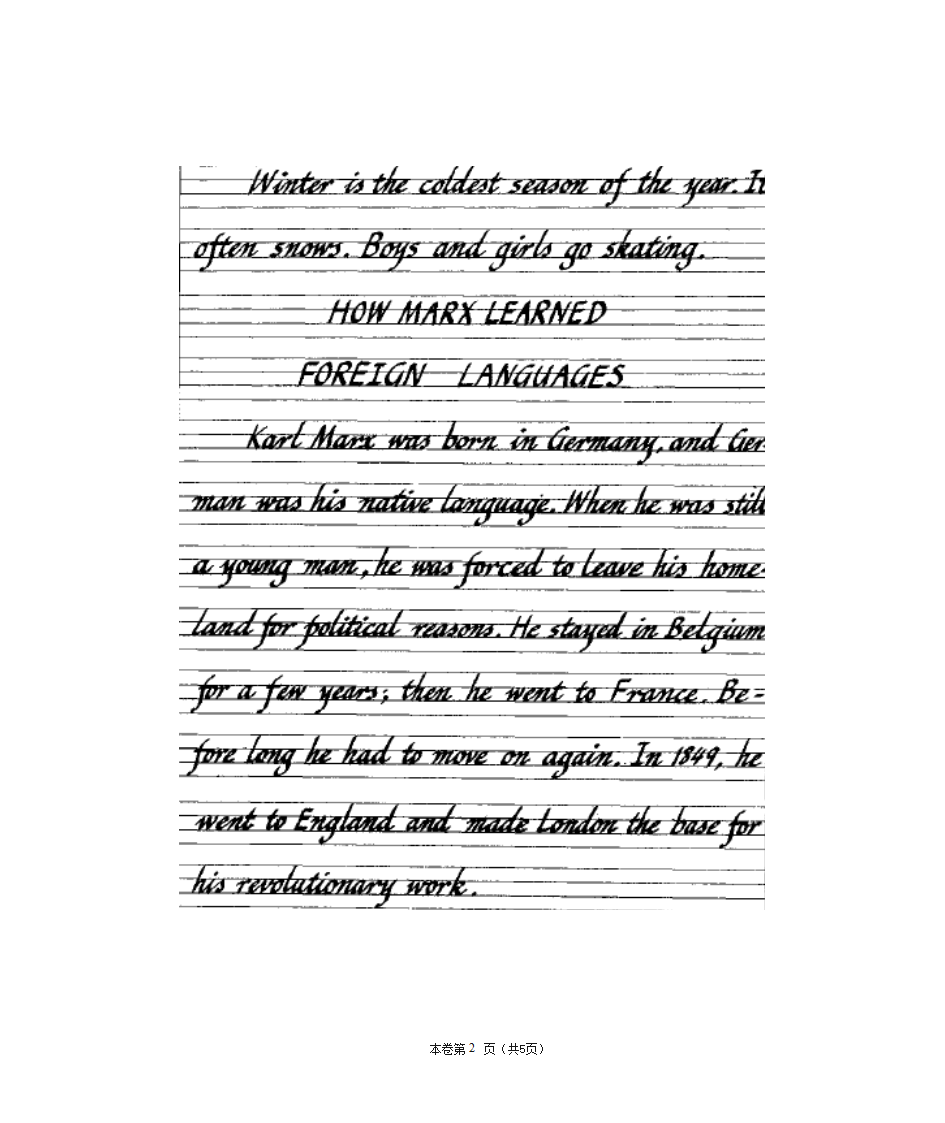 Winter is the coldest season of the year. It
often snows. Boys and girls go skating.
HOW MARX LEARNED
FOREIGN LANGUAGES
Karl Marx was born in Germany, and Ger-
man was his native language. When he was still
a young man, he was forced to leave his home-
land for political reasons. He stayed in Belgium
for a few years; then he went to France. Be-
fore long he had to move on again. In 1849, he
went to England and made London the base for
his revolutionary work.
本卷第 2 页（共5页）